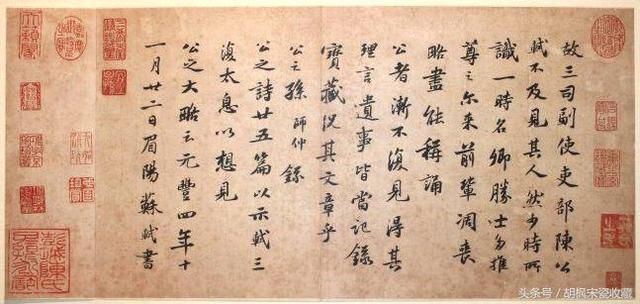 故三司副使吏部陳公
軾不及見其人然少時所
識一時名卿勝士多推
尊之尒來前輩凋喪
略盡能稱誦
公者漸不復見得其
理言遺事皆當記錄
寶藏況其文章乎
公之孫師仲錄
公之詩廿五篇以示軾三
復太息以想見
公之大略云元豐四年十
一月廿二日眉陽蘇軾書
头条号 / 胡枫宋瓷收藏